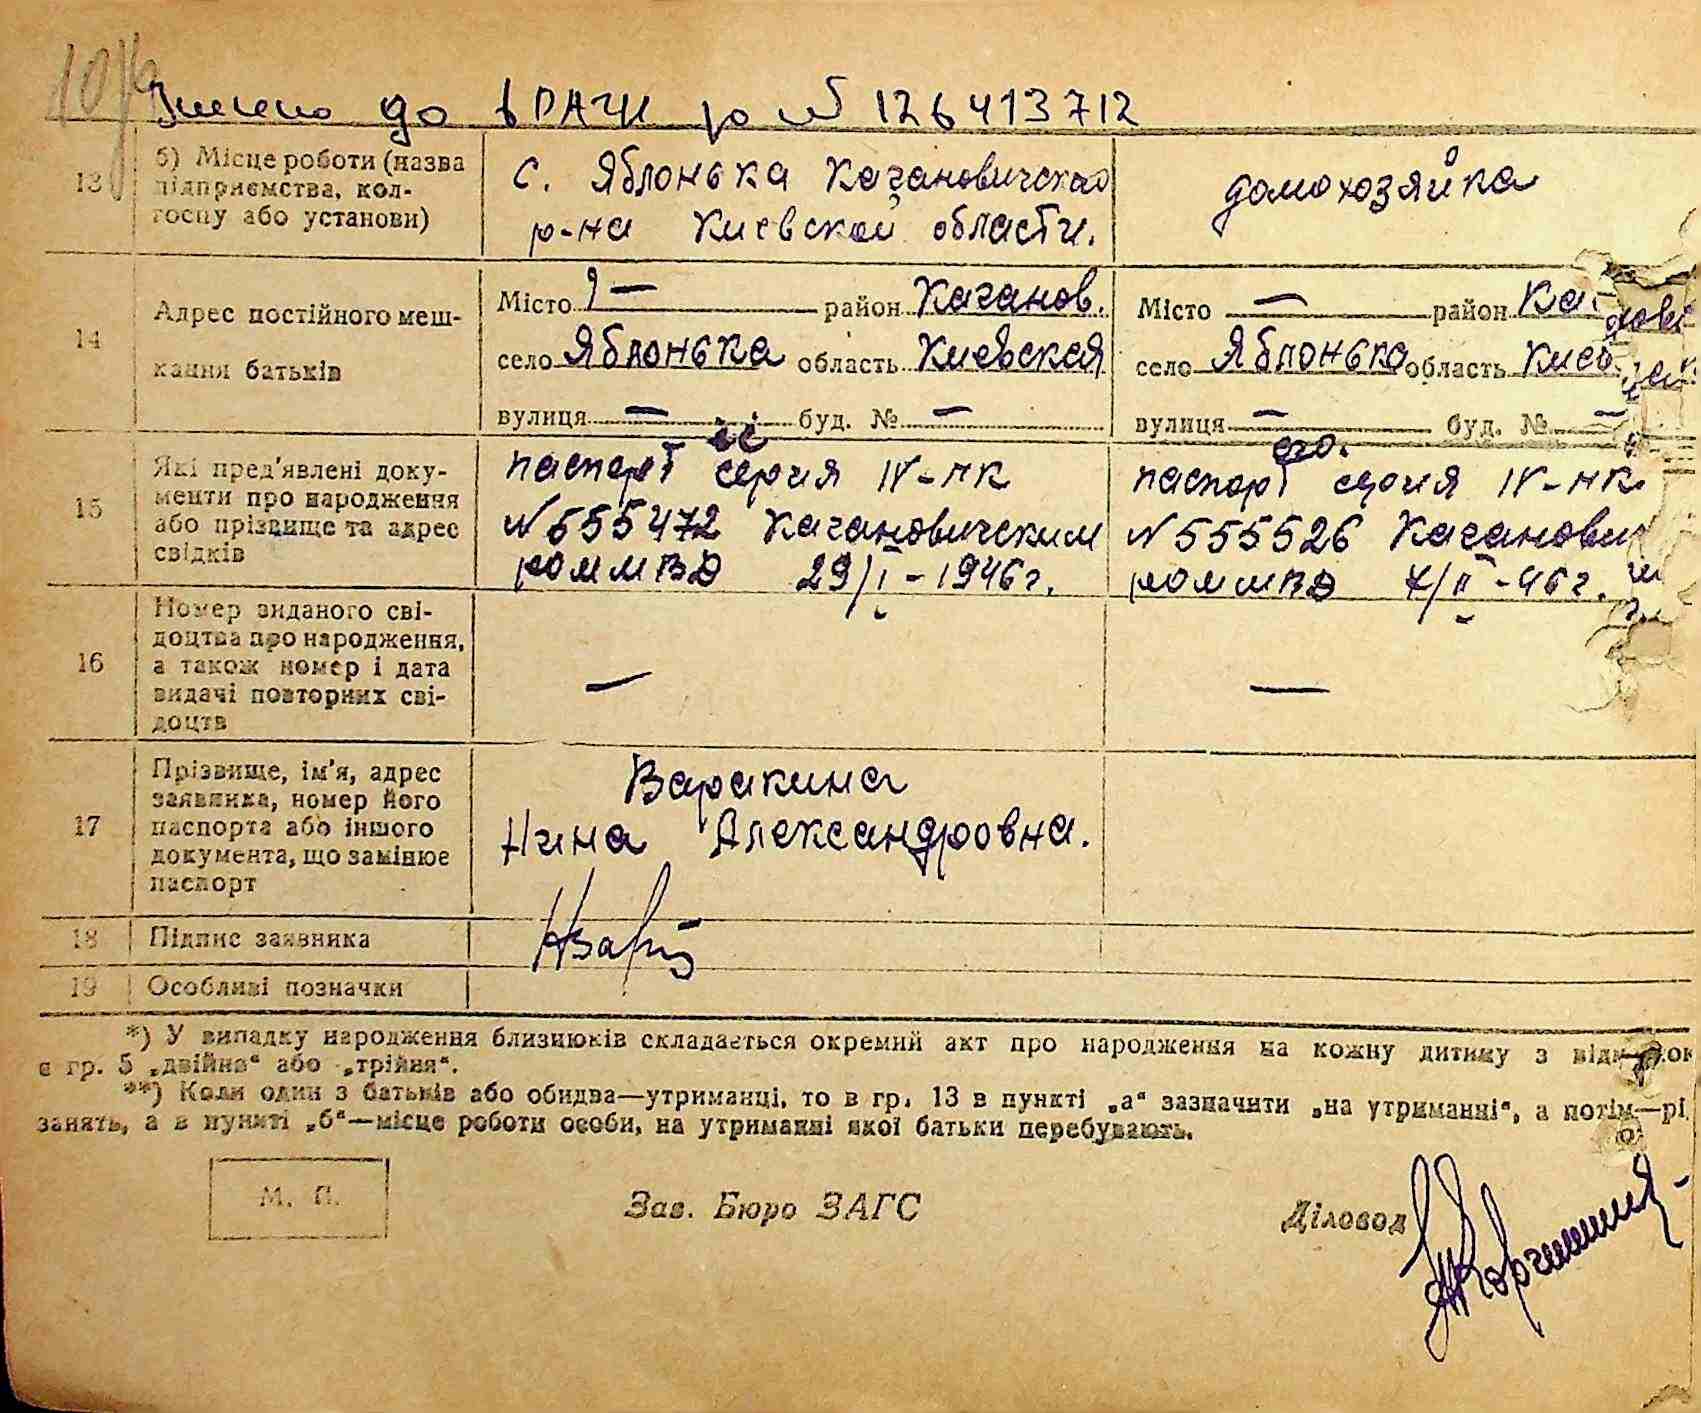 107
Внесено до ДРАЦС за № 126413712
13 б) Місце роботи (назва підприємства, кол-
госпу або установи)
с. Яблонька Кагановического
р-на Киевской области.
домохозяйка
14 Адрес постійного меш-
кання батьків
Місто — район Каганов.
село Яблонька область Киевская
вулиця — буд. № —
Місто — район Каганови
село Яблонька область Киев
вулиця — буд. № —
15 Які пред'явлені доку-
менти про народження
або прізвище та адрес
свідків
её
паспорт серия IV-НК
№ 555472 Кагановическим
РОММВД 29/I-1946г.
его.
паспорт серия IV-НК
№ 555526 Кагановичским
РОММВД 7/II-46г.
16 Номер виданого сві-
доцтва про народження,
а також номер і дата
видачі повторних сві-
доцтв
—
—
17 Прізвище, ім'я, адрес
заявника, номер його
паспорта або іншого
документа, що замінює
паспорт
Варакина
Нина Александровна.
18 Підпис заявника
19 Особливі позначки
*) У випадку народження близнюків складається окремий акт про народження на кожну дитину з
в гр. 5 „двійня“ або „трійня“.
**) Коли один з батьків або обидва—утриманці, то в гр. 13 в пункті „а“ зазначити „на утриманні“, а потім—рі
занять, а в пункті „б“—місце роботи особи, на утриманні якої батьки перебувають.
М. П.
Зав. Бюро ЗАГС
Діловод